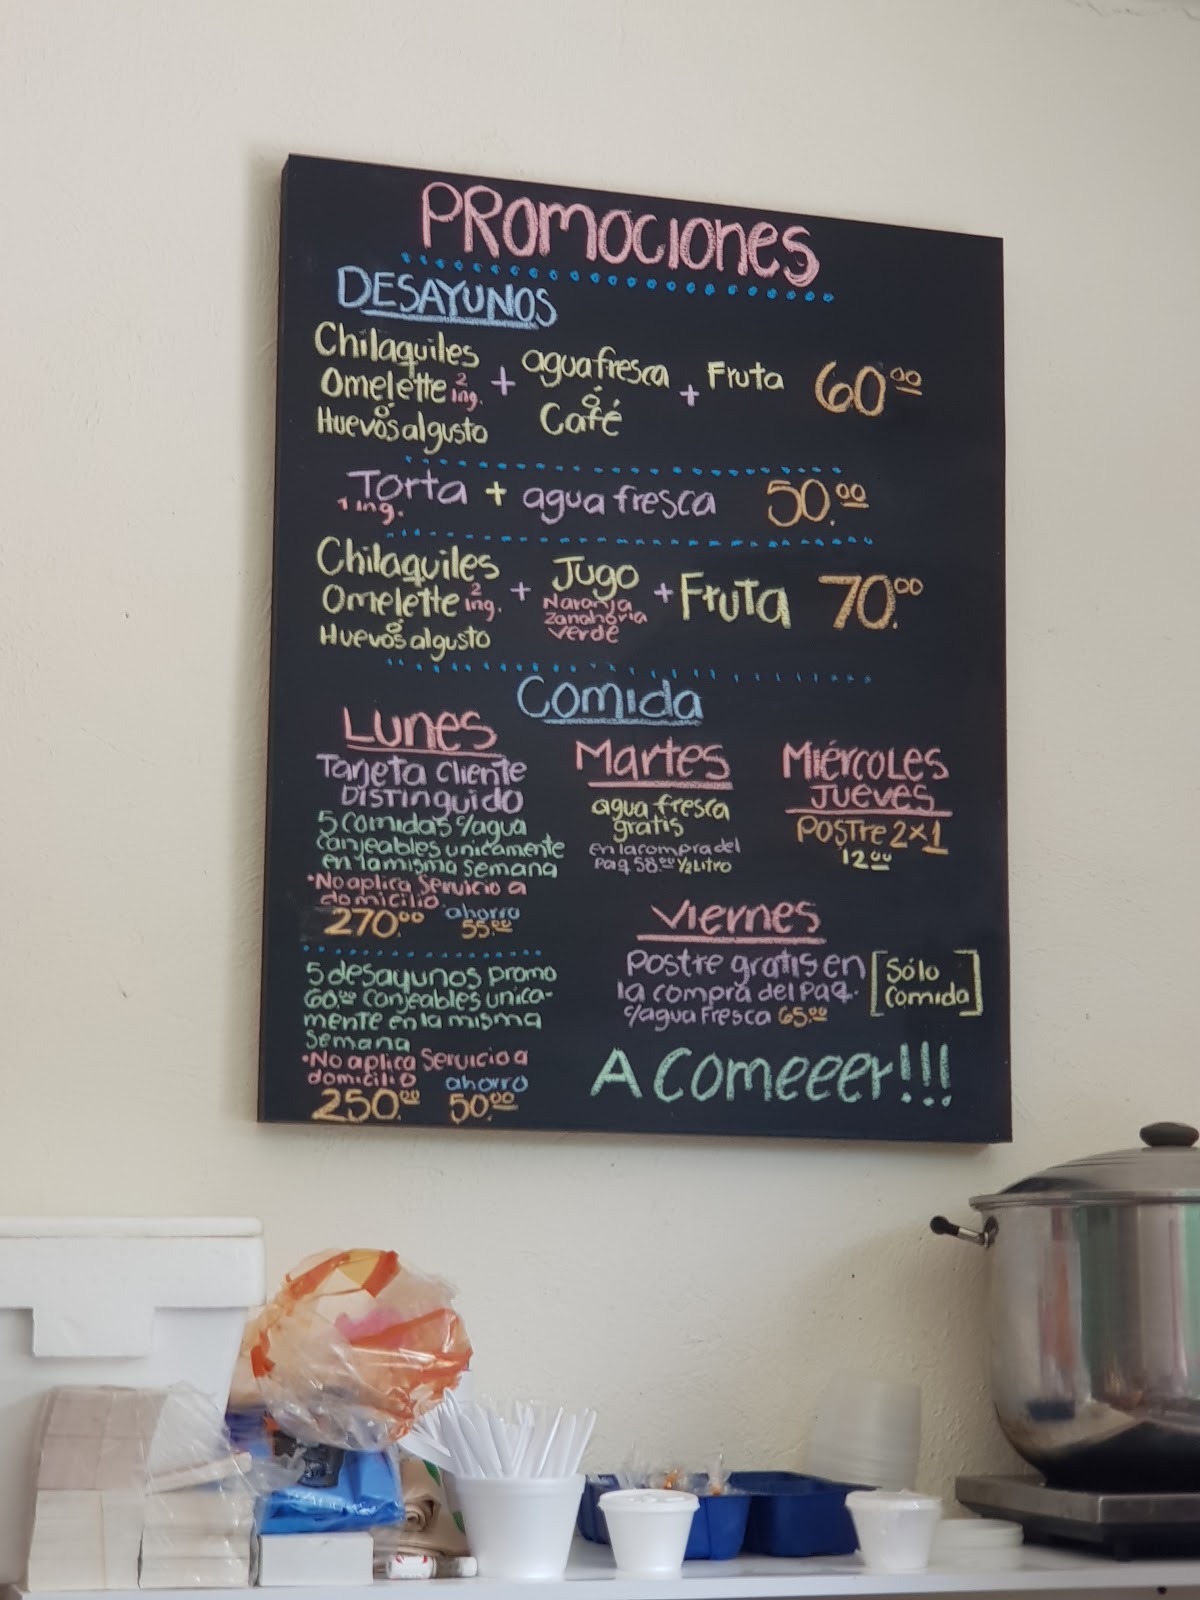 PROMOCIONES
DESAYUNOS
Chilaquiles
Omelette 2 ing.
ó
Huevos al gusto
+
agua fresca
ó
Café
+
Fruta
60.00
Torta + agua fresca 50.00
1 ing.
Chilaquiles
Omelette 2 ing.
ó
Huevos al gusto
+
Jugo
Naranja
Zanahoria
Verde
+
Fruta
70.00
Comida
Lunes
Tarjeta Cliente
Distinguido
5 comidas c/agua
canjeables unicamente
en la misma semana
•No aplica Servicio a
domicilio.
270.00 ahorro
55.00
5 desayunos promo
60.00 canjeables unica-
mente en la misma
Semana
•No aplica Servicio a
domicilio
250.00 ahorro
50.00
Martes
agua fresca
gratis
en la compra del
Paq 58.00 1/2 Litro
Miércoles
Jueves
Postre 2x1
12.00
Viernes
Postre gratis en
la compra del Paq.
c/agua Fresca 65.00
[Sólo
Comida]
A Comeeer!!!